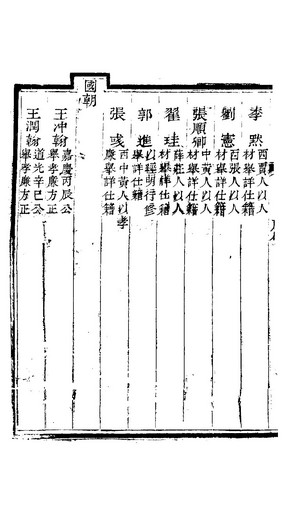 李㸃西賈人以人材舉詳仕籍
劉憲西張人以人材舉詳仕籍
張順卿中黃人以人材舉詳仕籍
翟珪薛莊人以人材舉詳仕籍
郭進以經明行修舉詳仕籍
張彧西中黃人以孝廉舉詳仕籍
國朝
王沖翰嘉慶丙辰公舉孝廉方正
王潤翰道光辛巳公舉孝廉方正